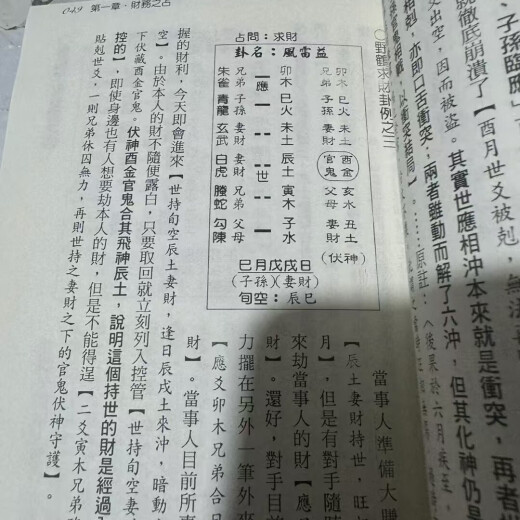 049 第一章‧財務之占
、子孫臨應」
就徹底崩潰了【酉月世爻被剋，
其實世應相沖本來就是衝突，再者世
爻出空，因而被盜。
剋，亦即口舌衝突；兩者雖動而解了六沖，但其化神仍是
◎野鶴求財卦例之三
占問：求財
卦名：風雷益
朱雀 兄弟 應 卯木 兄弟 卯木
青龍 子孫 巳火 子孫 巳火
玄武 妻財 未土 妻財 未土
白虎 妻財 世 辰土 官鬼 酉金
螣蛇 兄弟 寅木 父母 亥水
勾陳 父母 子水 妻財 丑土
(伏神)
巳月戊戌日
(子孫)(妻財)
旬空：辰巳
當事人準備大賺
【辰土妻財持世，旺
月】，但是有對手隨時
來劫當事人的財【應
財】。還好，對手目前
力擺在另外一筆外來
【應爻卯木兄弟合日
財】。當事人目前所
握的財利，今天即會進來【世持旬空辰土妻財，逢日辰戌土來沖，暗動
】。由於本人的財不隨便露白，只要取回就立刻列入控管【世持旬空妻
下伏藏酉金官鬼。伏神酉金官鬼合其飛神辰土，說明這個持世的財是經過
控的】，即使身邊也有人想要劫本人的財，但是不能得逞【二爻寅木兄弟
貼剋世爻，一則兄弟休囚無力，再則世持之妻財之下的官鬼伏神守護】。